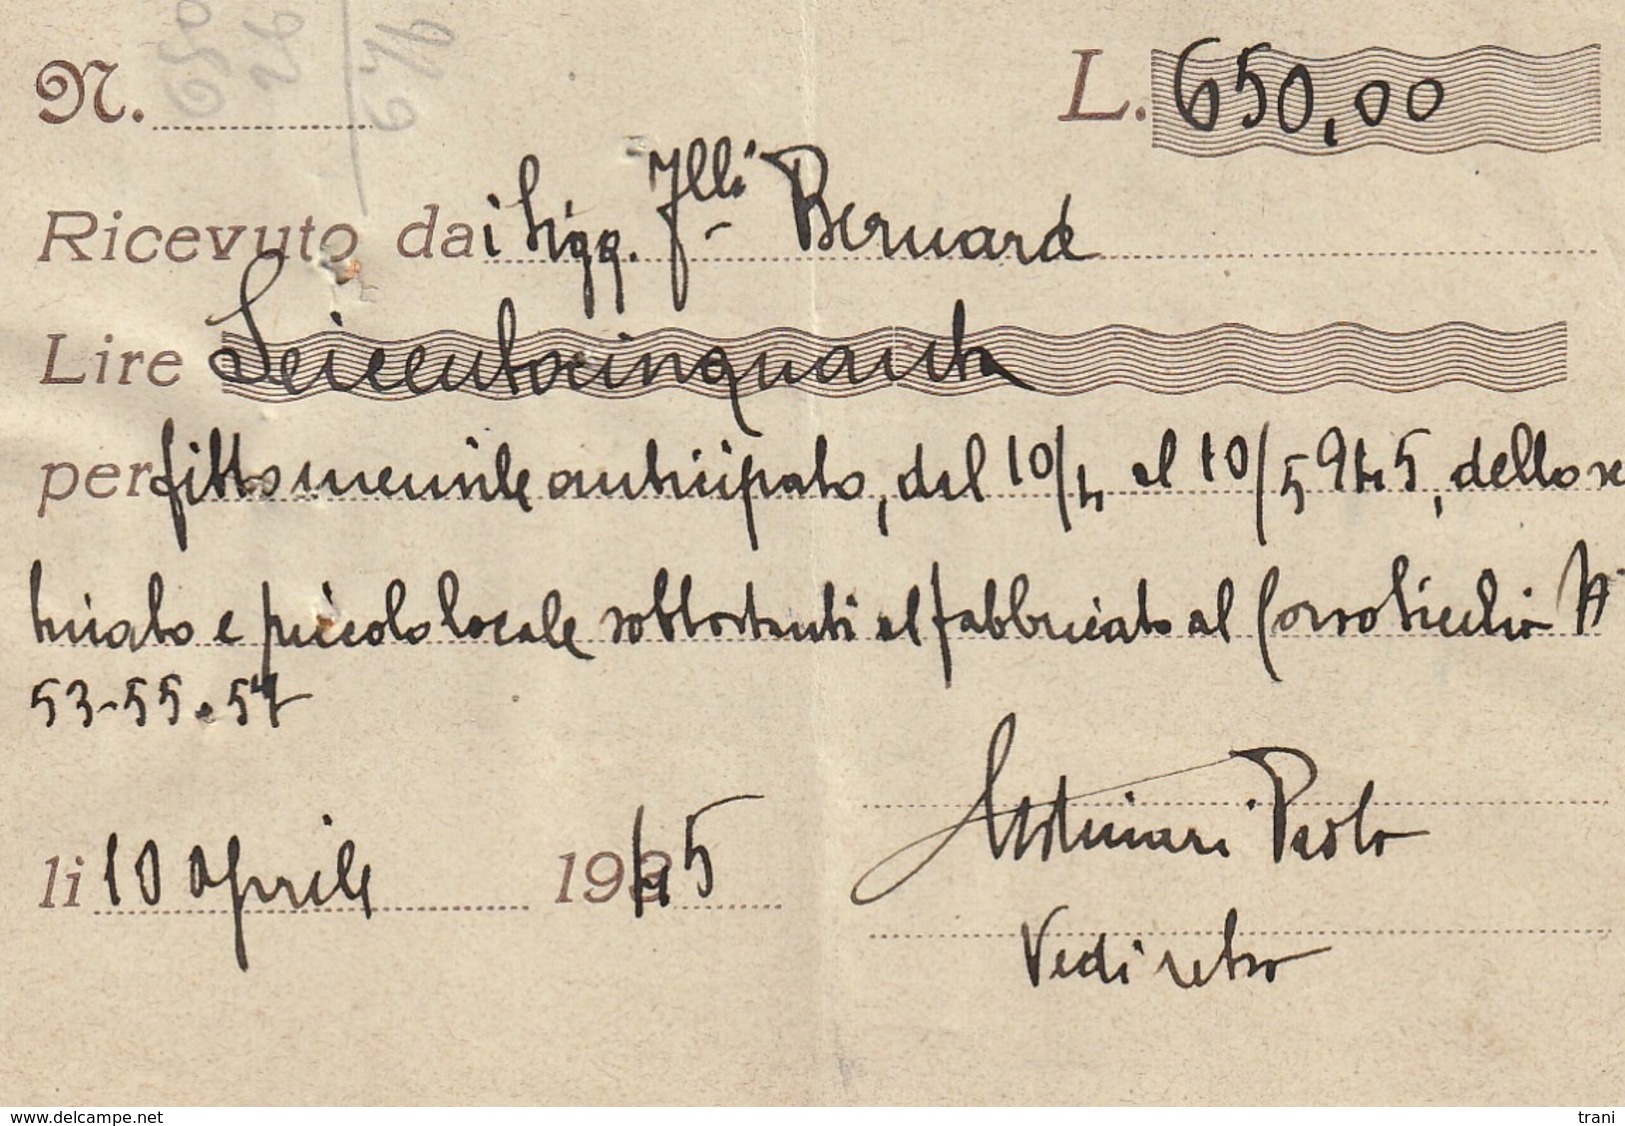 N. L. 650,00
Ricevuto dai Sigg. Flli Bernard
Lire Seicentocinquanta
per fitto mensile anticipato, dal 10/4 al 10/5 945, dello sc
tinato e piccolo locale sottostanti al fabbricato al Corso Sicilia N
53-55 e 57
li 10 Aprile 1945 Paolo
Vedi retro
www.delcampe.net trani